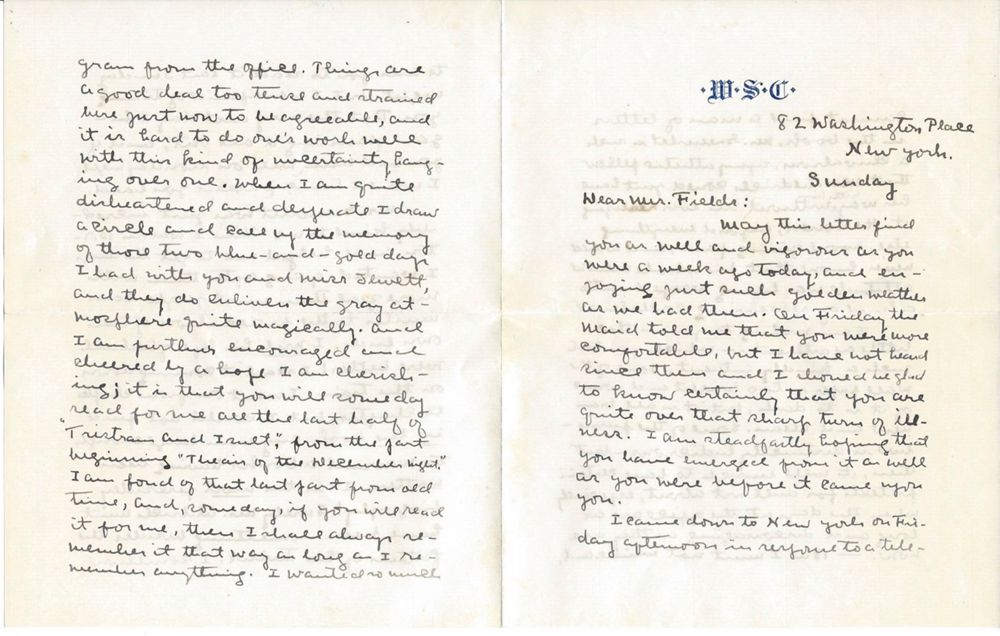 ·W·S·C·
82 Washington Place
New York.
Sunday
Dear Mrs. Fields:
May this letter find
you as well and vigorous as you
were a week ago today, and en-
joying just such golden weather
as we had then. On Friday the
maid told me that you were more
comfortable, but I have not heard
since then and I should be glad
to know certainly that you are
quite over that sharp turn of ill-
ness. I am steadfastly hoping that
you have emerged from it as well
as you were before it came upon
you.
I came down to New York on Fri-
day afternoon in response to a tele-
gram from the office. Things are
a good deal too tense and strained
here just now to be agreeable, and
it is hard to do one's work well
with this kind of uncertainty hang-
ing over one. When I am quite
disheartened and desperate I draw
a circle and call up the memory
of those two blue-and-gold days
I had with you and Miss Jewett,
and they do enliven the gray at-
mosphere quite magically. And
I am further encouraged and
cheered by a hope I am cherish-
ing; it is that you will some day
read for me all the last half of
"Tristram and Isult", from the part
beginning "The air of the December night."
I am fond of that last part from old
time, and, someday, if you will read
it for me, then I shall always re-
member it that way as long as I re-
member anything. I wanted so much